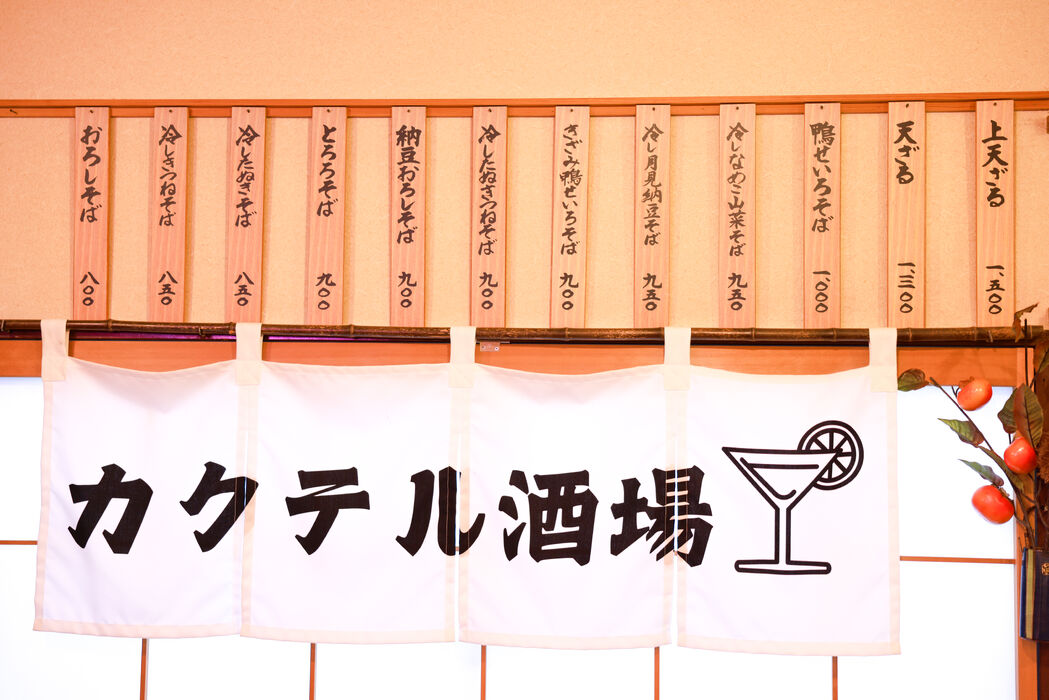 上天ざる 一、五〇〇
天ざる 一、三〇〇
鴨せいろそば 一、〇〇〇
冷しなめこ山菜そば 九五〇
冷し月見納豆そば 九五〇
きざみ鴨せいろそば 九〇〇
冷したぬきつねそば 九〇〇
納豆おろしそば 九〇〇
とろろそば 九〇〇
冷したぬきそば 八五〇
冷しきつねそば 八五〇
おろしそば 八〇〇
カクテル酒場